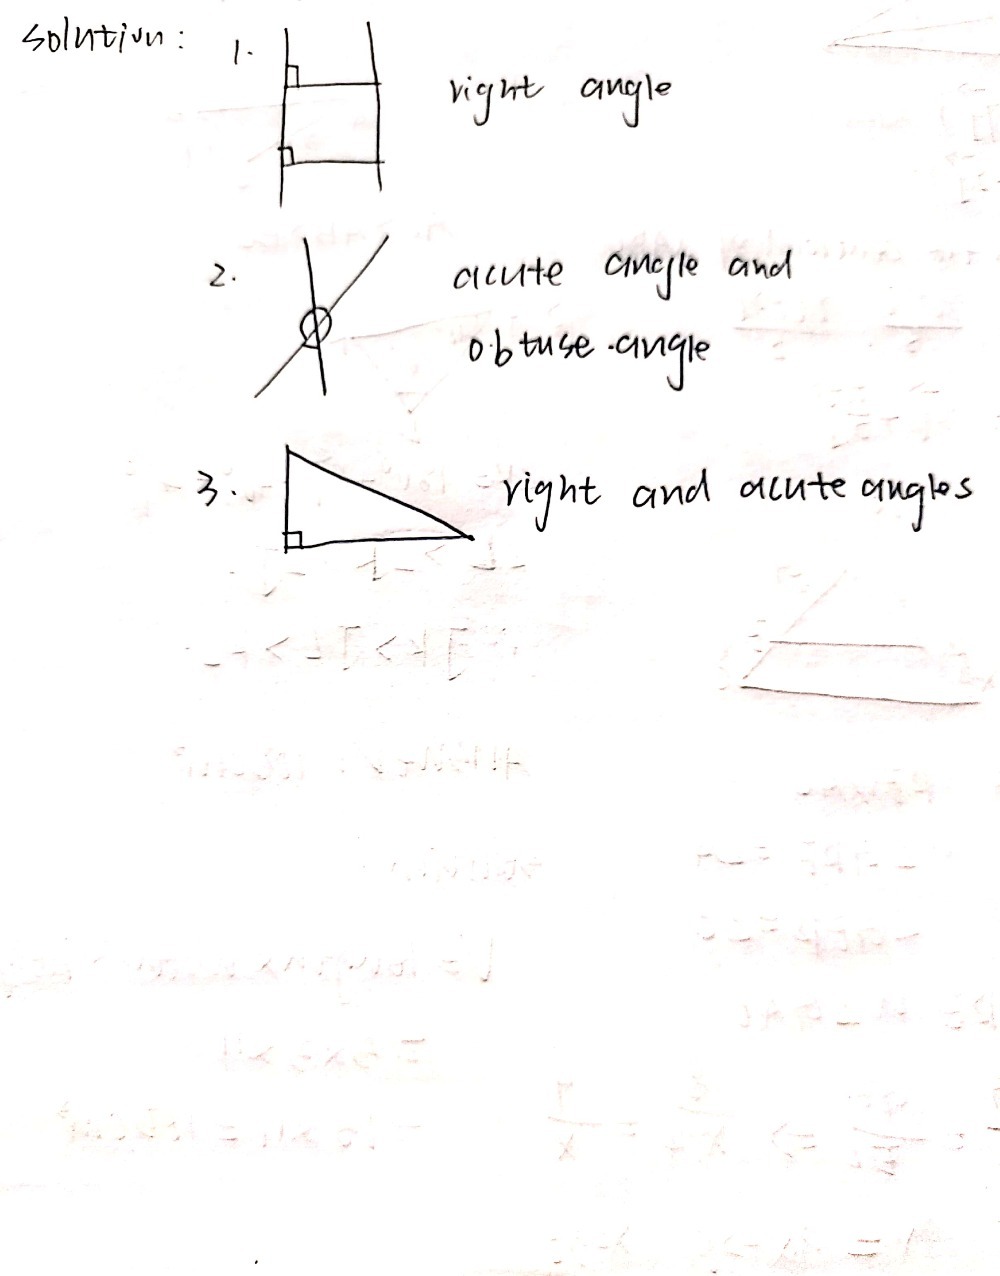 solution:
1. right angle
2. acute angle and
obtuse angle
3. right and acute angles